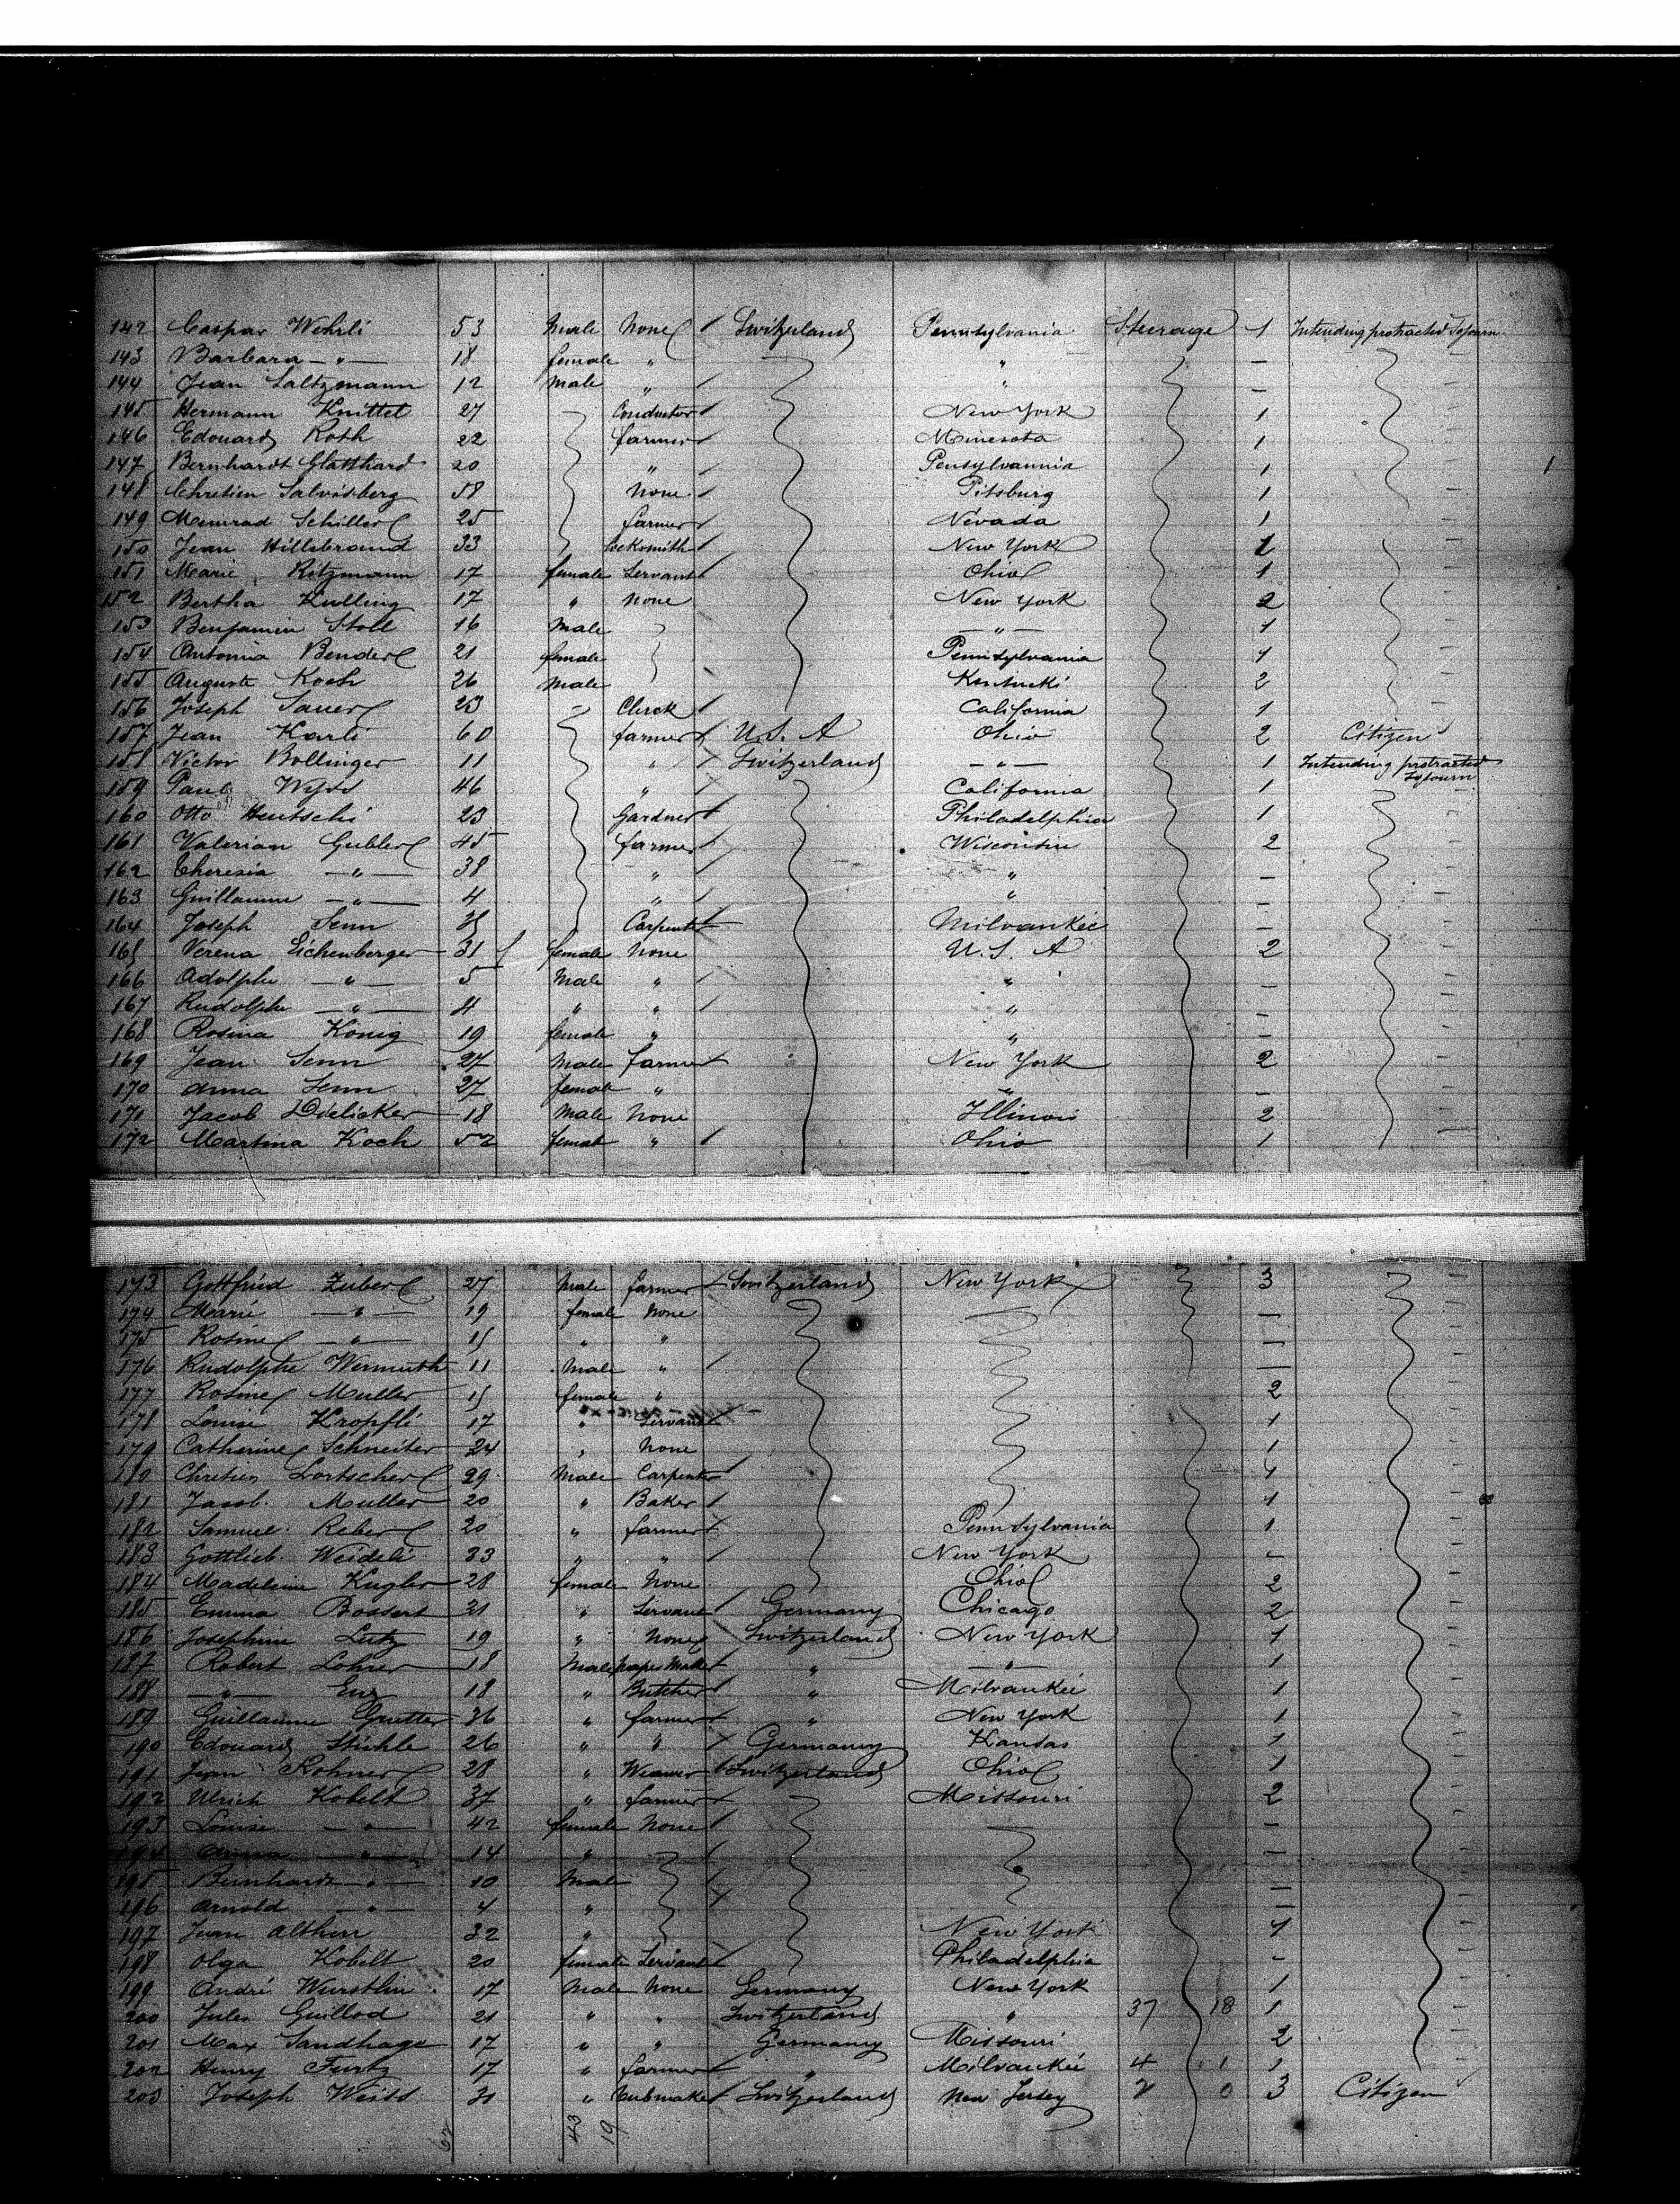 142 Caspar Wehrli 53 Male None Switzerland Pennsylvania Steerage 1 Intending protracted Sojourn
143 Barbara —"— 18 female " " —
144 Jean Saltzmann 12 Male " " —
145 Hermann Knittel 27 Conductor New York 1
146 Edouard Roth 22 farmer Minesota 1
147 Bernhardt Glatthard 20 " Pensylvannia 1
148 Chretien Salvisberg 58 None Pitsburg 1
149 Meinrad Schiller 25 farmer Nevada 1
150 Jean Hillebrand 33 Locksmith New York 1
151 Marie Ritzmann 17 female Servant Ohio 1
152 Bertha Kulling 17 " None New York 2
153 Benjamin Stoll 16 Male —"— 1
154 Antonia Bender 21 female Pennsylvania 1
155 Auguste Koch 26 Male Kentucki 2
156 Joseph Sauer 23 Clerck California 1
157 Jean Karli 60 farmer U. S. A Ohio 2 Citizen
158 Victor Bollinger 11 " Switzerland —"— 1 Intending protracted Sojourn
159 Paul Wyss 46 " California 1
160 Otto Hentschi 23 Gardner Philadelphia 1
161 Valerian Gubler 45 farmer Wisconsin 2
162 Theresia —"— 38 " " —
163 Guillaume —"— 4 " —
164 Joseph Senn Carpenter Milvankée —
165 Verena Eichenberger 31 female None U. S. A 2
166 Adolphe —"— 5 Male " " —
167 Rudolphe —"— 4 " " " —
168 Rosina König 19 female " " —
169 Jean Senn 27 Male farmer New York 2
170 Anna Senn 27 female " " —
171 Jacob Dielicker 18 Male None Illinois 2
172 Martina Koch 52 femal " Ohio 1
173 Gottfried Zuber 27 Male farmer Switzerland New York 3
174 Marie —"— 19 female None —
175 Rosine —"— 15 " " —
176 Rudolphe Wermuth 11 Male " —
177 Rosine Muller 15 female " 2
178 Louise Kropfli 17 " Servant 1
179 Catherine Schneiter 24 " None 1
180 Chretien Lortscher 29 Male Carpenter 1
181 Jacob Muller 20 " Baker 1
182 Samuel Reber 20 " farmer Pennsylvania 1
183 Gottlieb Weideli 33 " " New York —
184 Madeleine Kugler 28 female None Ohio 2
185 Emma Bossert 21 " Servant Germany Chicago 2
186 Josephine Lutz 19 " None Switzerland New York 1
187 Robert Lohrer 18 Male paper Maker " —"— 1
188 —"— Eng 18 " Butcher " Milvaukée 1
189 Guillaume Grutter 36 " farmer " New York 1
190 Edouard Stickle 26 " " Germany Kansas 1
191 Jean Rohner 28 " Weawer Switzerland Ohio 1
192 Ulrich Kobelt 37 " farmer Missouri 2
193 Louise —"— 42 female None —
194 Anna —"— 14 " —
195 Bernhardt —"— 10 Male —
196 Arnold —"— 4 " —
197 Jean Altherr 32 " New York 1
198 Olga Kobelt 20 female Servant Philadelphia —
199 André Wurstlin 17 Male None Germany New York 1
200 Jules Guillod 21 " " Switzerland " 37 18 1
201 Max Sandhage 17 " " Germany Missouri 2
202 Henry Furtz 17 " farmer " Milvaukée 4 1 1
203 Joseph Weiss 31 " Switzerland New Jersey 2 0 3 Citizen
62 43 19